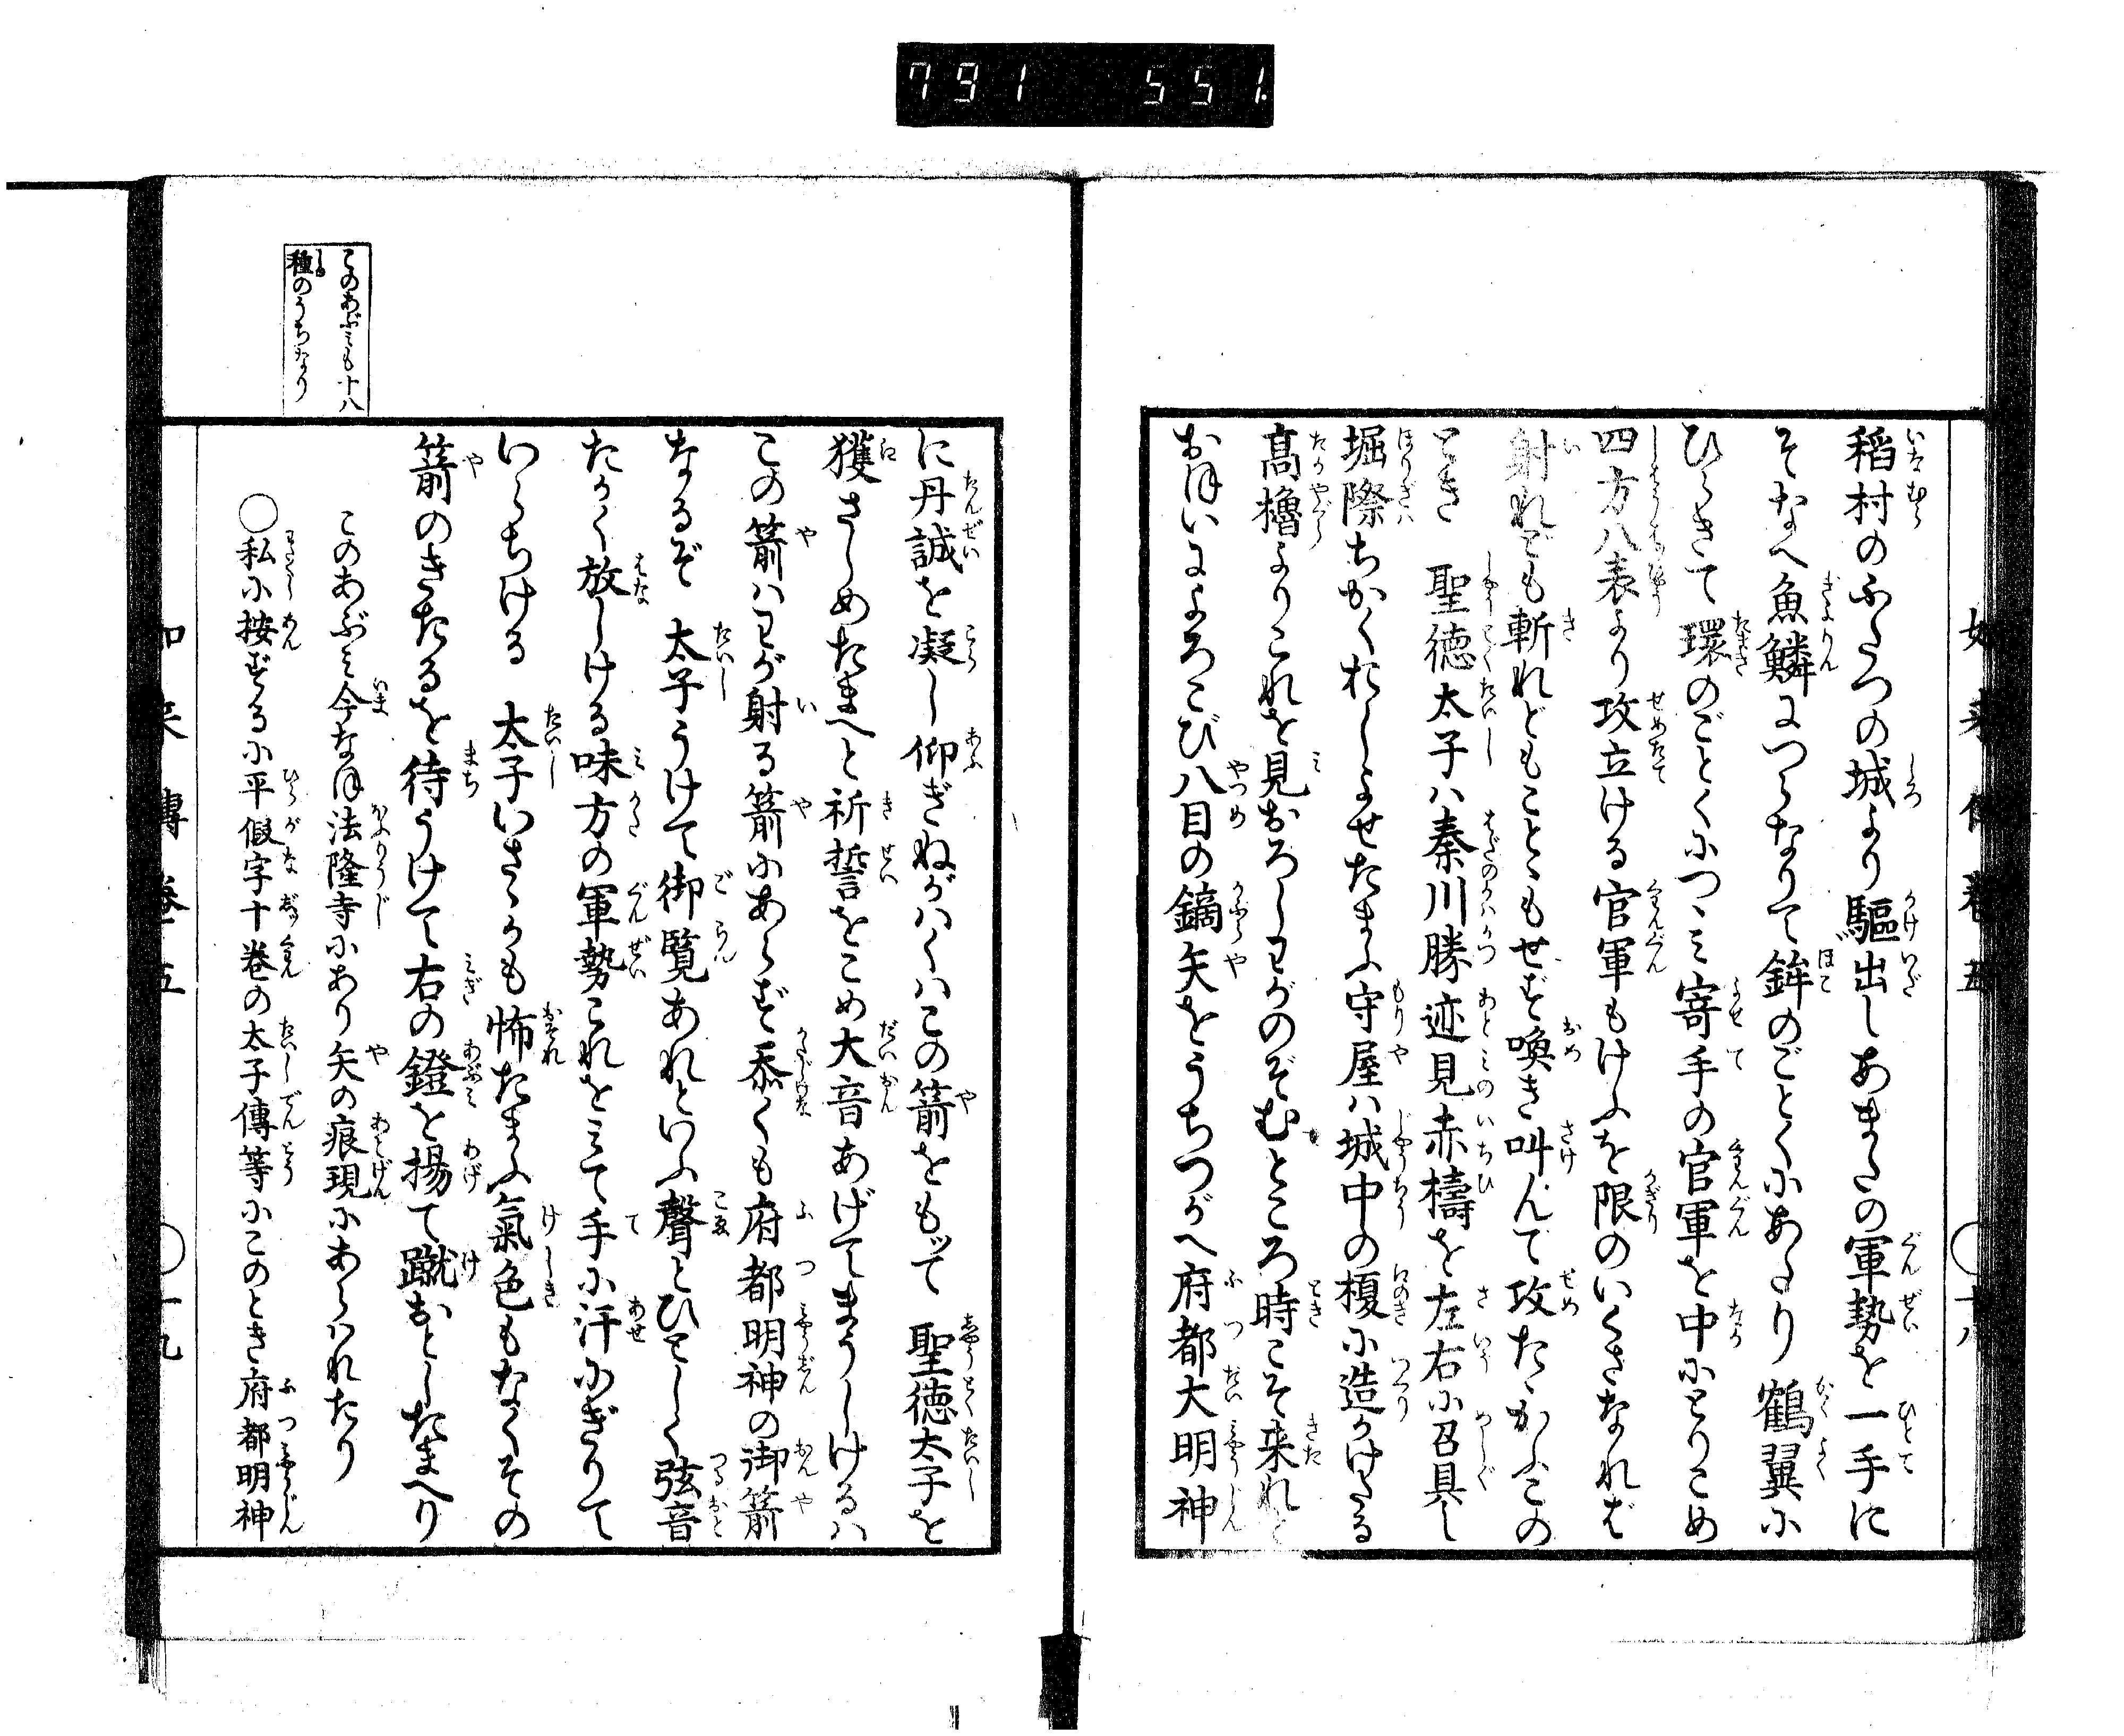 791 551
稻村のふたつの城より驅出しあまたの軍勢を一手に
そなへ魚鱗につらなりて鉾のごとくにあたり鶴翼に
ひらきて環のごとくにつゝみ寄手の官軍を中にとりこめ
四方八表より攻立ける官軍もけふを限のいくさなれば
射れども斬れどもことゝもせず喚き叫んで攻たゝかふこの
とき 聖徳太子ハ秦川勝迹見赤檮を左右に召具し
堀際ちかくおしよせたまふ守屋ハ城中の榎に造りかけたる
髙櫓よりこれを見おろしわがのぞむところ時こそ来れと
おほいによろこび八目の鏑矢をうちつがへ府都大明神
如来傳卷五 十八
に丹誠を凝し仰ぎねがハくハこの箭をもッて 聖徳太子を
獲さしめたまへと祈誓をこめ大音あげてまうしけるハ
この箭ハわが射る箭にあらず忝くも府都明神の御箭
なるぞ 太子うけて御覧あれといふ聲とひとしく弦音
たかく放しける味方の軍勢これをみて手に汗にぎりて
いらちける 太子いさゝかも怖たまふ氣色もなくその
箭のきたるを待うけて右の鐙を揚て蹴おとしたまへり
このあぶみ今なほ法隆寺にあり矢の痕現にあらハれたり
○私に按ずるに平假字十巻の太子傳等にこのとき府都明神
このあぶミも十八
種のうちなり
如来傳卷五 十九